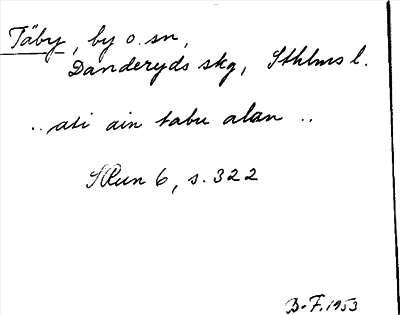 Täby, by o. sn,
Danderyds skg, Sthlms l.
.. ati ain tabu alan ..
SRun 6, s. 322
B-F. 1953